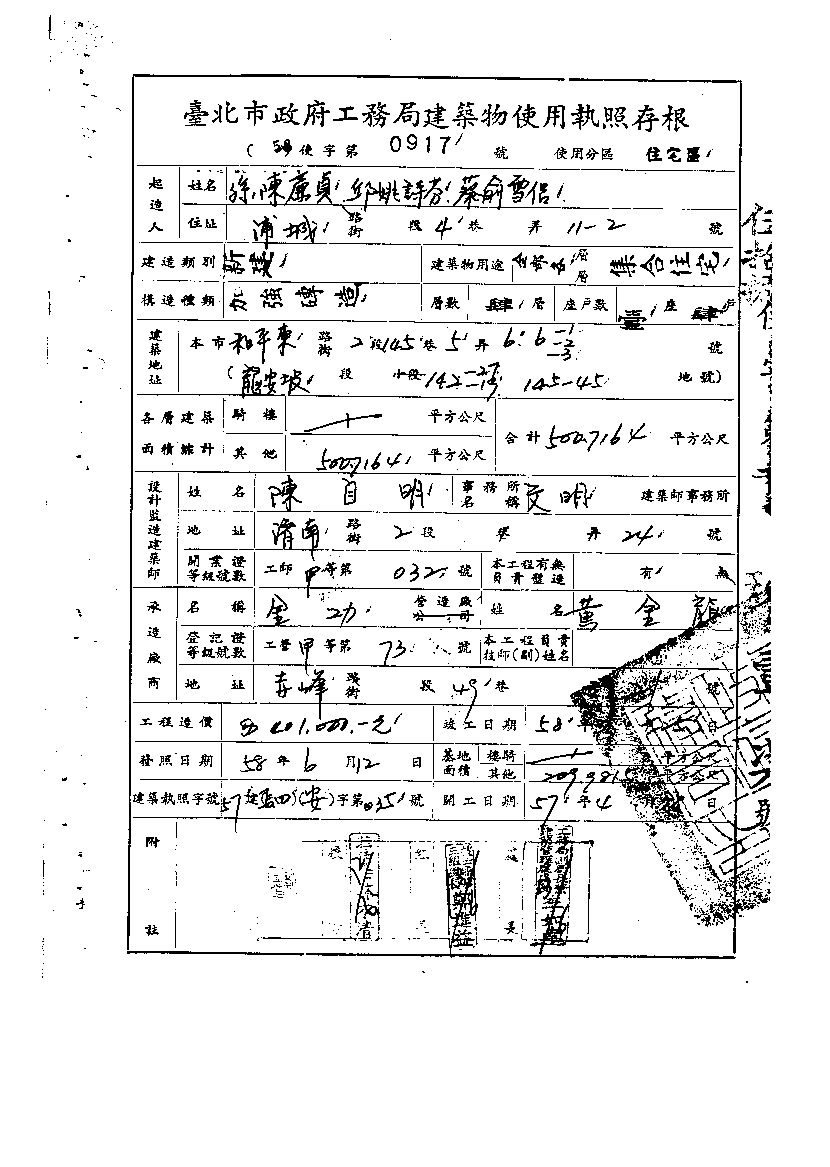 臺北市政府工務局建築物使用執照存根
(58使字第 0917 號 使用分區 住宅區
起造人 姓名 孫陳廉貞 邱姚詩芬 蔡俞雪侶
住址 浦城 路街 段 4 巷 弄 11-2 號
建造類別 新建 建築物用途 層層 集合住宅
構造種類 加強磚造 層數 肆 層 座戶數 壹 座 肆 戶
建築地址 本市 和平東 路街 2 段 145 巷 5 弄 6.6-1-2-3 號
(龍安坡 段 小段 142-27 145-45 地號)
各層建築面積總計 騎樓 平方公尺 合計 500.7164 平方公尺
其他 500.7164 平方公尺
設計監造建築師 姓名 陳 明 事務所名稱 文明 建築師事務所
地址 濟南 路街 2 段 巷 弄 24 號
開業證等級號數 工師 甲 等第 032 號 本工程有無負責監造 有 無
承造廠商 名稱 金力 營造廠公司 姓名 黃金龍
登記證等級號數 工營 甲 等第 73 號 本工程負責技師(副)姓名
地址 赤峰 路街 段 49 巷 號
工程造價 401,000.-元 竣工日期 58 年 日
發照日期 58 年 6 月 12 日 基地面積 樓騎 平方公尺
其他 209.981 平方公尺
建築執照字號 57 建 (安) 字第 035 號 開工日期 57 年 4 日
附註